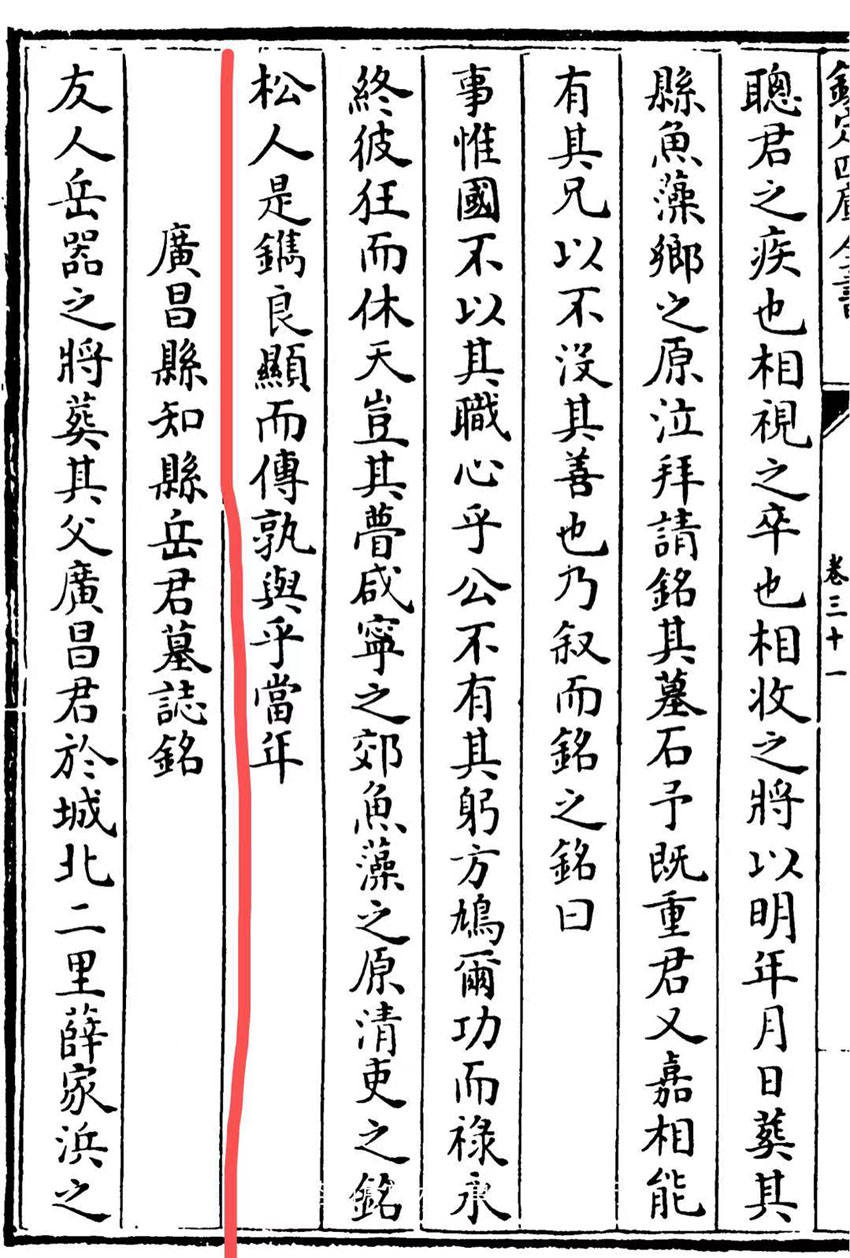 欽定四庫全書
卷三十一
聰君之疾也相視之卒也相收之將以明年月日葬其
縣魚藻鄉之原泣拜請銘其墓石予既重君又嘉相能
有其兄以不没其善也乃叙而銘之銘曰
事惟國不以其職心乎公不有其躬方鳩爾功而祿永
終彼狂而休天豈其瞢咸寧之郊魚藻之原清吏之銘
松人是鐫良顯而傳孰與乎當年
廣昌縣知縣岳君墓誌銘
友人岳器之將葬其父廣昌君於城北二里薛家浜之